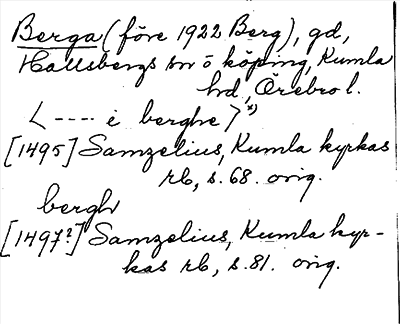 Berga (före 1922 Berg), gd,
Hallsbergs sn o köping, Kumla
hd, Örebro l.
<---- i berghe> *)
[1495] Samzelius, Kumla kyrkas
rb, s. 68. orig.
bergh
[1497?] Samzelius, Kumla kyr-
kas rb, s. 81. orig.